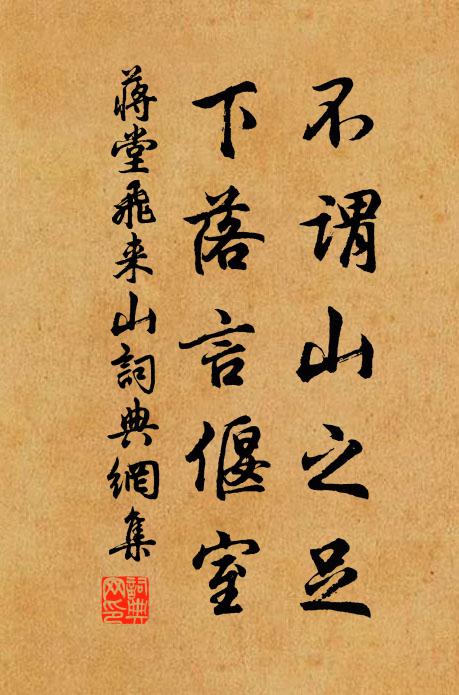 不谓山之足
下落言偃室
蒋堂飛来山詞典網集
詞典网印